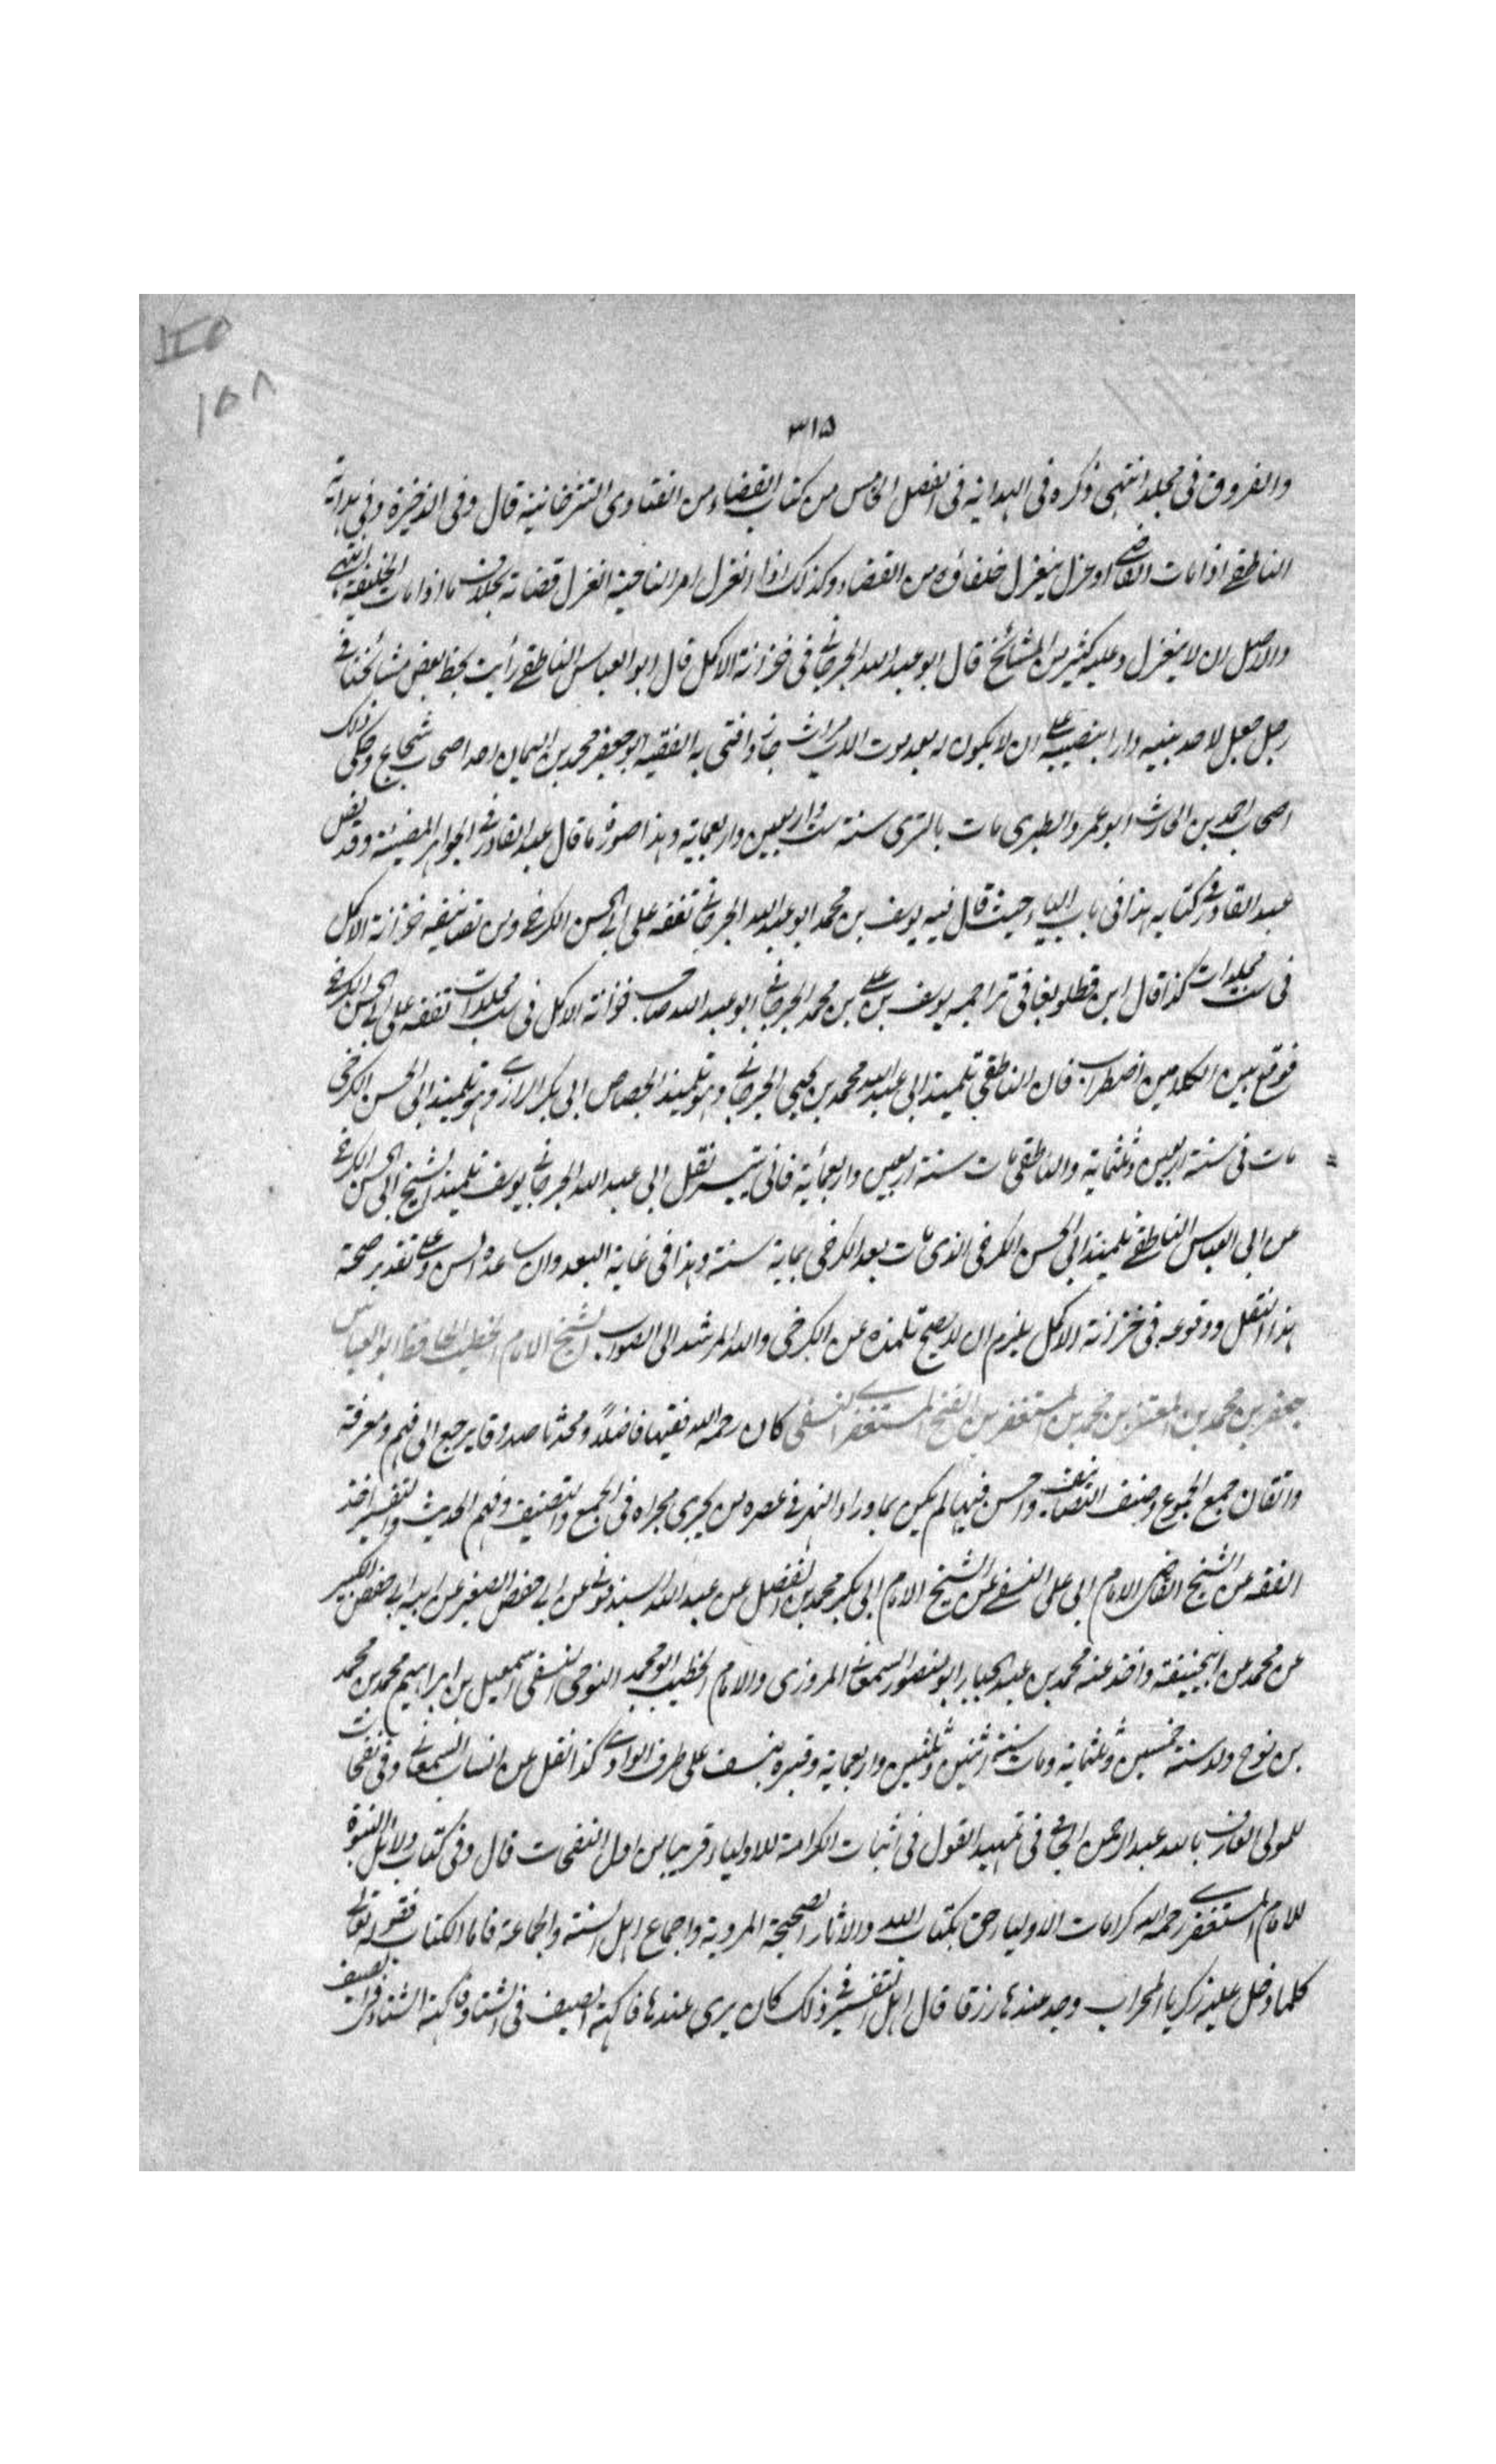 ١٥٨
٣١٥
والفروق فى مجلد انتهى ذكره فى الهداية فى الفصل الخامس من كتاب القضاء من الفتاوى التترخانية قال وفى الذخيرة وفى هداية
الناطقے اذا مات القاضى او عزل ينعزل خلفاؤه من القضاء وكذلك اذا انعزل امر الناحية انعزل قضاته بخلاف ما اذا مات الخليفة انتهى
والاصل ان لا ينعزل وعليه كثير من المشائخ قال ابو عبد الله الجرجانے فى خزانة الاكمل قال ابو العباس الناطقے رأيت بخط بعض مشائخنا فى
رجل جعل لاحد بنيه دارا بنصيبه على ان لا يكون له بعد موت الاب ميراث جاز وافتى به الفقيه ابو جعفر محمد بن اليمان احد اصحاب شجاع وحكى ذلك
اصحاب احمد بن الحارث ابو عمرو الطبرى مات بالرى سنة ست واربعين واربعماية وهذا صورة ما قال عبد القادر فے الجواهر المضيئة وقد نص
عبد القادر فے كتابه هذا فى باب الياء حيث قال فيه يوسف بن محمد ابو عبد الله الجرجانے تفقه على ابے الحسن الكرخے ومن تصانيفه خزانة الاكمل
فى ست مجلدات كذا قال ابن قطلوبغا فى تراجمه يوسف بن على بن محمد الجرجانے ابو عبد الله صاحب خزانة الاكمل فى ست مجلدات تفقه على ابے الحسن الكرخے
فوقع بين الكلامين اضطراب فان الناطقى تلميذ ابى عبد الله محمد بن يحيى الجرجانے وهو تلميذ الجصاص ابى بكر الرازے وهو تلميذ ابى الحسن الكرخى
مات فى سنة اربعين وثلثماية والناطقى مات سنة اربعين واربعماية فانى تيسر نقل ابى عبد الله الجرجانے يوسف تلميذ الشيخ ابى الحسن الكرخے
عن ابى العباس الناطقے تلميذ ابى الحسن الكرخى الذى مات بعد الكرخى بماية سنة وهذا فى غاية البعد وان ساعده السن وعلى تقدير صحة
هذا النقل ووقوعه فى خزانة الاكمل يلزم ان لا يصح تلمذه عن الكرخى والله المرشد الى الصواب الشيخ الامام الخطيب الحافظ ابو العباس
جعفر بن محمد بن المعتز بن محمد بن المستغفر بن الفتح المستغفرے النسفى كان رحمه الله فقيها فاضلاً ومحدثا صدوقا يرجع الى فهم ومعرفة
واتقان جمع الجموع وصنف التصانيف واحسن فيها لم يكن بماوراء النهر فے عصره من يجرى مجراه فى الجمع والتصنيف وفهم الحديث والتفسير اخذ
الفقه عن الشيخ القاضى الامام ابى على النسفے عن الشيخ الامام ابى بكر محمد بن الفضل عن عبد الله السبذمونے عن ابے حفص الصغير عن ابيه ابے حفص الكبير
عن محمد عن ابيحنيفة واخذ عنه محمد بن عبد الجبار ابو منصور السمعانے المروزى والامام الخطيب ابو محمد النوحى النسفى اسمعيل بن ابراهيم محمد بن محمد
بن نوح ولد سنة خمسين وثلثماية ومات سنة اثنين وثلثين واربعماية وقبره بنسف على طرف الوادے كذا نقل عن انساب السمعانے وفى نفحات
للمولى العارف بالله عبد الرحمن الجامى فى تمهيد القول فى اثبات الكرامة للاولياء قريبا من اول النفحات قال وفى كتاب دلائل النبوة
للامام المستغفرے رحمه الله كرامات الاولياء حق بكتاب الله والاثار الصحيحة المروية واجماع اهل السنة والجماعة فاما الكتاب فقوله تعالى
كلما دخل عليها زكريا المحراب وجد عندها رزقا قال اهل التفسير فے ذلك كان يرى عندها فاكهة الصيف فى الشتاء وفاكهة الشتاء فى الصيف